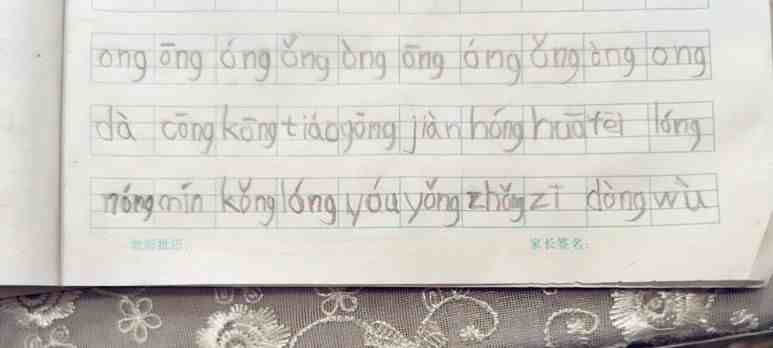 ong ōng óng ǒng òng ōng óng ǒng òng ong
dà cōng kōng tiáo gōng jiàn hóng huā fēi lóng
nóng mín kǒng lóng yóu yǒng zhǒng zǐ dòng wù
家长签名：